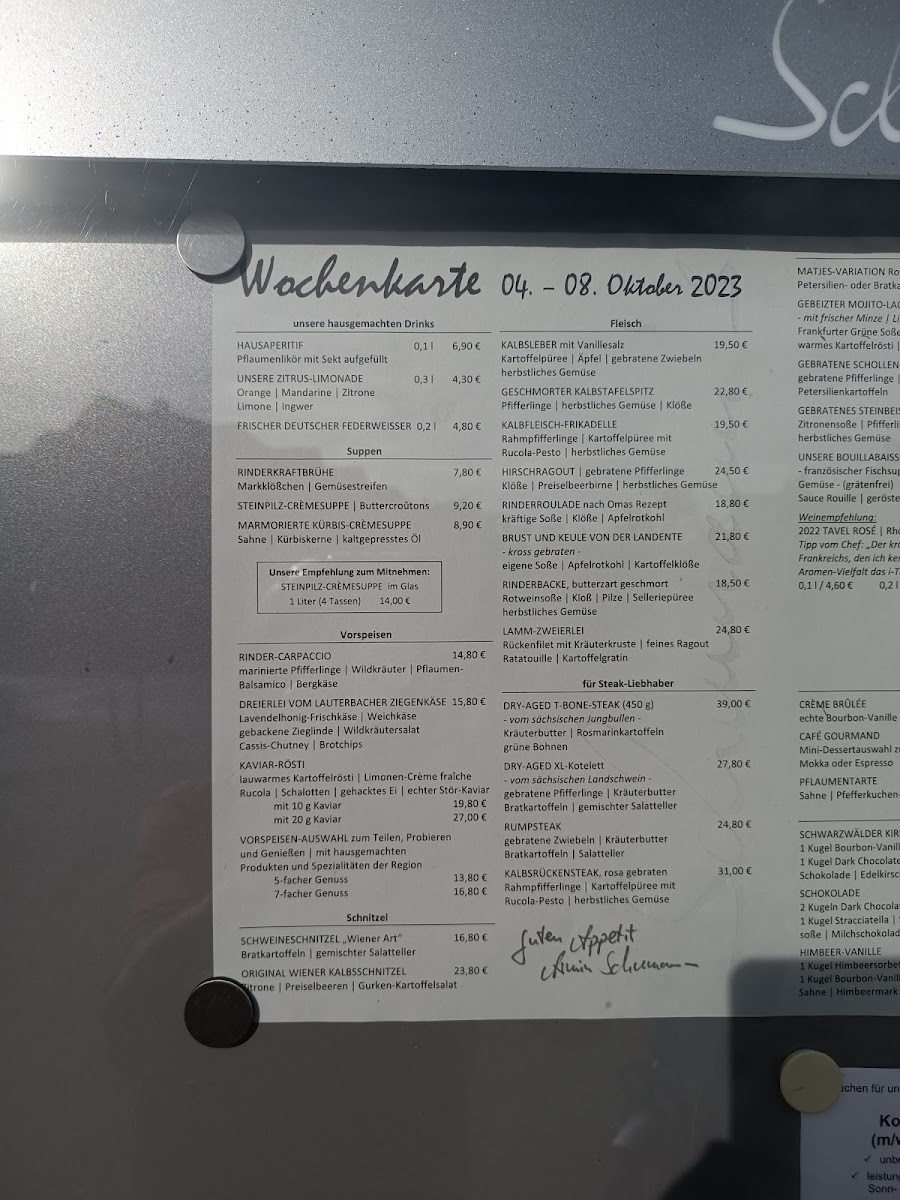 Sch
Wochenkarte 04. – 08. Oktober 2023
unsere hausgemachten Drinks
HAUSAPERITIF 0,1 l 6,90 €
Pflaumenlikör mit Sekt aufgefüllt
UNSERE ZITRUS-LIMONADE 0,3 l 4,30 €
Orange | Mandarine | Zitrone
Limone | Ingwer
FRISCHER DEUTSCHER FEDERWEISSER 0,2 l 4,80 €
Suppen
RINDERKRAFTBRÜHE 7,80 €
Markklößchen | Gemüsestreifen
STEINPILZ-CRÈMESUPPE | Buttercroûtons 9,20 €
MARMORIERTE KÜRBIS-CRÈMESUPPE 8,90 €
Sahne | Kürbiskerne | kaltgepresstes Öl
Unsere Empfehlung zum Mitnehmen:
STEINPILZ-CRÈMESUPPE im Glas
1 Liter (4 Tassen) 14,00 €
Vorspeisen
RINDER-CARPACCIO 14,80 €
marinierte Pfifferlinge | Wildkräuter | Pflaumen-
Balsamico | Bergkäse
DREIERLEI VOM LAUTERBACHER ZIEGENKÄSE 15,80 €
Lavendelhonig-Frischkäse | Weichkäse
gebackene Zieglinde | Wildkräutersalat
Cassis-Chutney | Brotchips
KAVIAR-RÖSTI
lauwarmes Kartoffelrösti | Limonen-Crème fraîche
Rucola | Schalotten | gehacktes Ei | echter Stör-Kaviar
mit 10 g Kaviar 19,80 €
mit 20 g Kaviar 27,00 €
VORSPEISEN-AUSWAHL zum Teilen, Probieren
und Genießen | mit hausgemachten
Produkten und Spezialitäten der Region
5-facher Genuss 13,80 €
7-facher Genuss 16,80 €
Schnitzel
SCHWEINESCHNITZEL „Wiener Art" 16,80 €
Bratkartoffeln | gemischter Salatteller
ORIGINAL WIENER KALBSSCHNITZEL 23,80 €
Zitrone | Preiselbeeren | Gurken-Kartoffelsalat
Fleisch
KALBSLEBER mit Vanillesalz 19,50 €
Kartoffelpüree | Äpfel | gebratene Zwiebeln
herbstliches Gemüse
GESCHMORTER KALBSTAFELSPITZ 22,80 €
Pfifferlinge | herbstliches Gemüse | Klöße
KALBFLEISCH-FRIKADELLE 19,50 €
Rahmpfifferlinge | Kartoffelpüree mit
Rucola-Pesto | herbstliches Gemüse
HIRSCHRAGOUT | gebratene Pfifferlinge 24,50 €
Klöße | Preiselbeerbirne | herbstliches Gemüse
RINDERROULADE nach Omas Rezept 18,80 €
kräftige Soße | Klöße | Apfelrotkohl
BRUST UND KEULE VON DER LANDENTE 21,80 €
- kross gebraten -
eigene Soße | Apfelrotkohl | Kartoffelklöße
RINDERBACKE, butterzart geschmort 18,50 €
Rotweinsoße | Kloß | Pilze | Selleriepüree
herbstliches Gemüse
LAMM-ZWEIERLEI 24,80 €
Rückenfilet mit Kräuterkruste | feines Ragout
Ratatouille | Kartoffelgratin
für Steak-Liebhaber
DRY-AGED T-BONE-STEAK (450 g) 39,00 €
- vom sächsischen Jungbullen -
Kräuterbutter | Rosmarinkartoffeln
grüne Bohnen
DRY-AGED XL-Kotelett 27,80 €
- vom sächsischen Landschwein -
gebratene Pfifferlinge | Kräuterbutter
Bratkartoffeln | gemischter Salatteller
RUMPSTEAK 24,80 €
gebratene Zwiebeln | Kräuterbutter
Bratkartoffeln | Salatteller
KALBSRÜCKENSTEAK, rosa gebraten 31,00 €
Rahmpfifferlinge | Kartoffelpüree mit
Rucola-Pesto | herbstliches Gemüse
Guten Appetit
Armin Schumann
MATJES-VARIATION Ro
Petersilien- oder Bratka
GEBEIZTER MOJITO-LAC
- mit frischer Minze | Li
Frankfurter Grüne Soße
warmes Kartoffelrösti |
GEBRATENE SCHOLLEN
gebratene Pfifferlinge |
Petersilienkartoffeln
GEBRATENES STEINBEIS
Zitronensoße | Pfifferli
herbstliches Gemüse
UNSERE BOUILLABAISS
- französischer Fischsup
Gemüse - (grätenfrei)
Sauce Rouille | geröste
Weinempfehlung:
2022 TAVEL ROSÉ | Rhô
Tipp vom Chef: „Der kra
Frankreichs, den ich ken
Aromen-Vielfalt das i-T
0,1 l / 4,60 € 0,2 l
CRÈME BRÛLÉE
echte Bourbon-Vanille
CAFÉ GOURMAND
Mini-Dessertauswahl z
Mokka oder Espresso
PFLAUMENTARTE
Sahne | Pfefferkuchen-
SCHWARZWÄLDER KIRS
1 Kugel Bourbon-Vanill
1 Kugel Dark Chocolate
Schokolade | Edelkirsc
SCHOKOLADE
2 Kugeln Dark Chocola
1 Kugel Stracciatella | S
soße | Milchschokolad
HIMBEER-VANILLE
1 Kugel Himbeersorbet
1 Kugel Bourbon-Vanil
Sahne | Himbeermark
uchen für un
Ko
(m/w
✓ unbe
✓ leistun
Sonn-